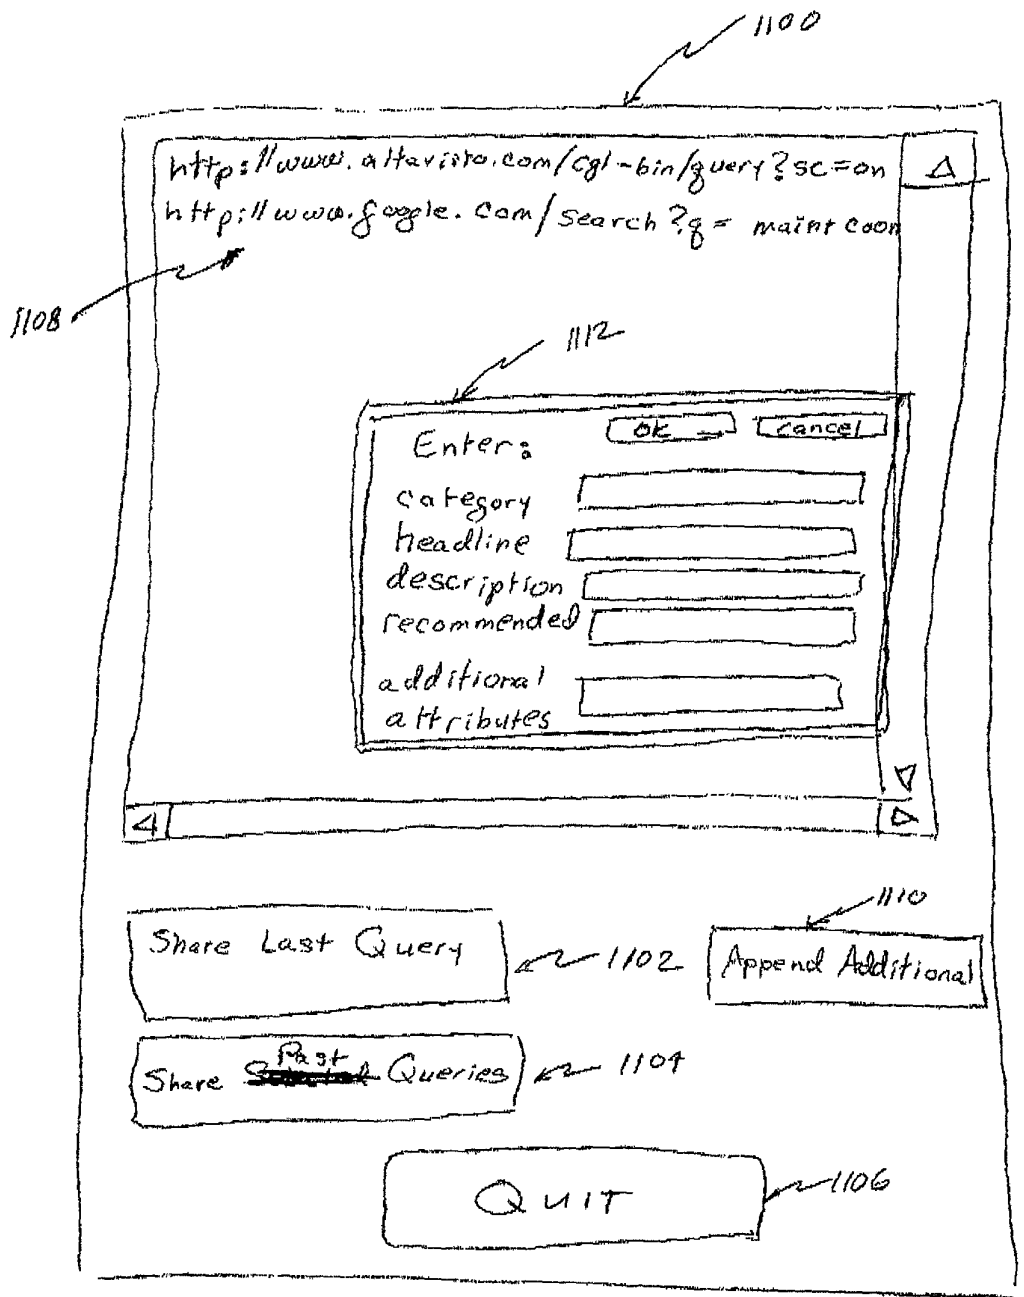 1100
http://www.altavista.com/cgi-bin/query?sc=on
http://www.google.com/search?q= maint coon
1108
1112
Enter:
OK
Cancel
category
headline
description
recommended
additional
attributes
1110
Share Last Query
1102
Append Additional
Past
Share Queries
1104
QUIT
1106